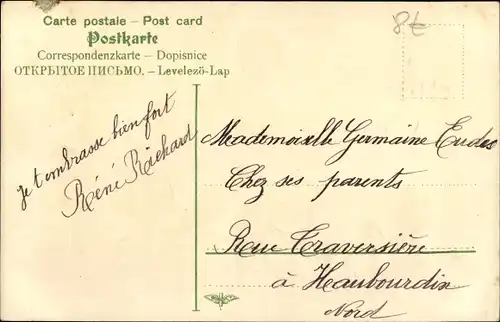 Carte postale – Post card
Postkarte
Correspondenzkarte – Dopisnice
ОТКРЫТОЕ ПИСЬМО. – Levelezö-Lap
8€
je t'embrasse bien fort
Réné Richard
Mademoiselle Germaine Eudes
Chez ses parents
Rue Traversière
à Haubourdin
Nord